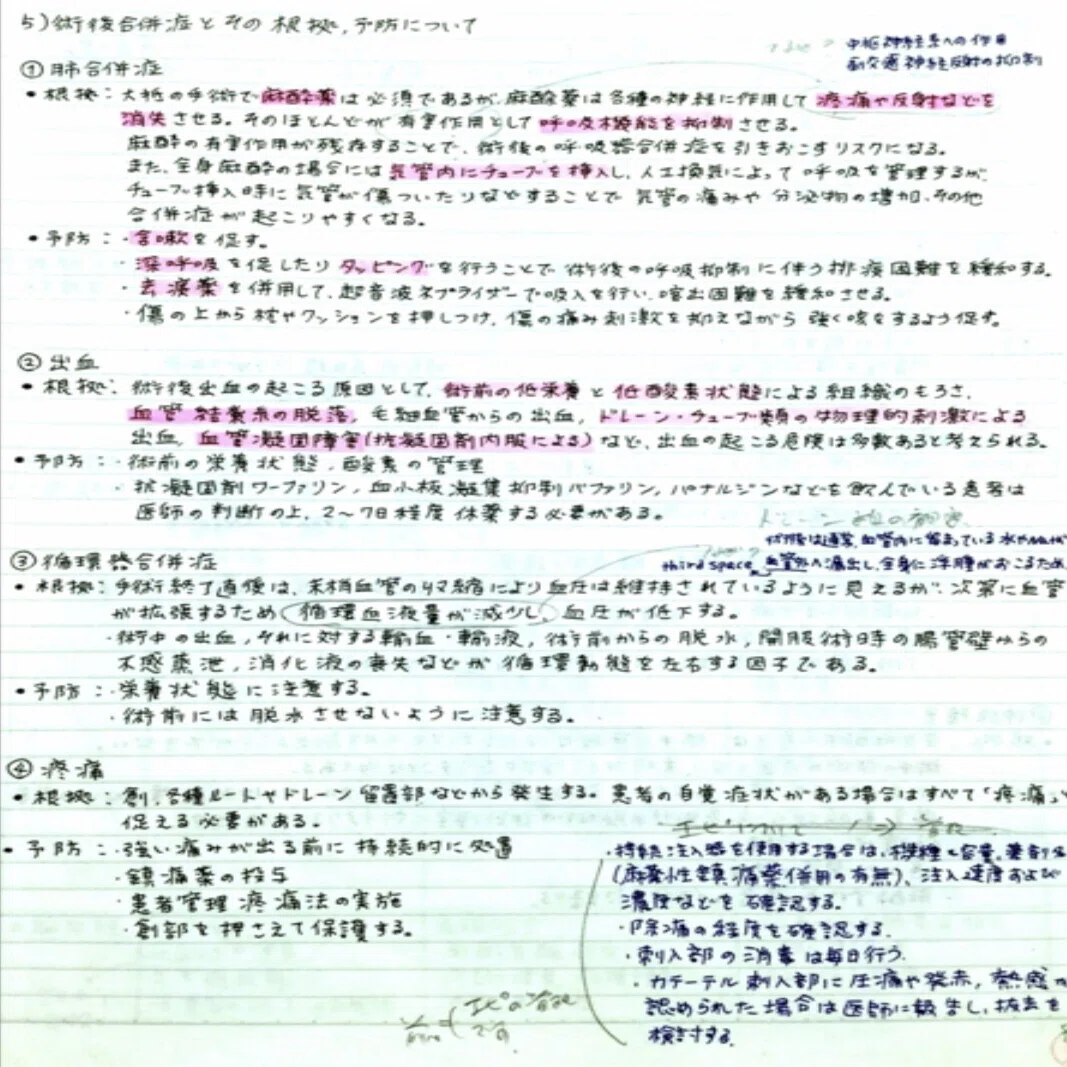 5)術後合併症とその根拠,予防について
中枢神経系への作用
副交通神経反射の抑制
①肺合併症
・根拠:大抵の手術で麻酔薬は必須であるが,麻酔薬は各種の神経に作用して疼痛や反射などを
消失させる。そのほとんどが有害作用として呼吸機能を抑制させる。
麻酔の有害作用が残存することで、術後の呼吸器合併症を引きおこすリスクになる。
また,全身麻酔の場合には気管内にチューブを挿入し,人工換気によって呼吸を管理するが、
チューブ挿入時に気管が傷ついたりなどすることで気管の痛みや分泌物の増加、その他
合併症が起こりやすくなる。
・予防:・含嗽を促す。
・深呼吸を促したりタッピングを行うことで術後の呼吸抑制に伴う排痰困難を緩和する。
・去痰薬を併用して、超音波ネブライザーで吸入を行い、喀出困難を緩和させる。
・傷の上から枕やクッションを押しつけ、傷の痛み刺激を抑えながら強く咳をするよう促す。
②出血
・根拠:術後出血の起こる原因として、術前の低栄養と低酸素状態による組織のもろさ、
血管結紮糸の脱落,毛細血管からの出血,ドレーン・チューブ類の物理的刺激による
出血,血管凝固障害(抗凝固剤内服による)など、出血の起こる危険は多数あると考えられる。
・予防:・術前の栄養状態,酸素の管理
・抗凝固剤ワーファリン,血小板凝集抑制バファリン,パナルジンなどを飲んでいる患者は
医師の判断の上,2〜7日程度休薬する必要がある。
術後は通常,血管内に留まっている水や
third space 血管外へ漏出し,全身に浮腫がおこるため
③循環器合併症
・根拠:手術終了直後は、末梢血管の収縮により血圧は維持されているように見えるが、次第に血管
が拡張するため循環血液量が減少し、血圧が低下する。
・術中の出血,それに対する輸血・輸液,術前からの脱水,開腹術時の腸管壁からの
不感蒸泄,消化液の喪失などが循環動態を左右する因子である。
・予防:・栄養状態に注意する。
・術前には脱水させないように注意する。
④疼痛
・根拠:創,各種ルートやドレーン留置部などから発生する。患者の自覚症状がある場合はすべて「疼痛」
捉える必要がある。
・予防:・強い痛みが出る前に持続的に処置
・鎮痛薬の投与
・患者管理疼痛法の実施
・創部を押さえて保護する。
・持続注入器を使用する場合は、機種と容量、薬剤
(麻薬性鎮痛薬併用の有無)、注入速度および
濃度などを確認する。
・除痛の程度を確認する。
・刺入部の消毒は毎日行う。
・カテーテル刺入部に圧痛や発赤,熱感
認められた場合は医師に報告し,抜去を
検討する。